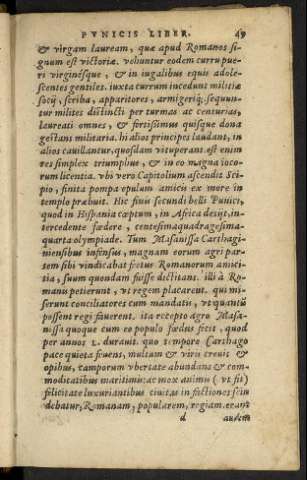 PVNICIS LIBER. 49
& virgam lauream, quæ apud Romanos si-
gnum est victoriæ. vehuntur eodem curru pue-
ri virginésque, & in iugalibus equis adole-
scentes gentiles. iuxta currum incedunt militiæ
socij, scribæ, apparitores, armigeríq; sequun-
tur milites distincti per turmas ac centurias,
laureati omnes, & fortissimus quisque dona
gestans militaria. hi alios principes laudant, in
alios cauillantur, quosdam vituperant. est enim
res simplex triumphus, & in eo magna ioco-
rum licentia. vbi vero Capitolium ascendit Sci-
pio, finita pompa epulum amicis ex more in
templo præbuit. Hic finis secundi belli Punici,
quod in Hispania cœptum, in Africa desijt, in-
tercedente fœdere, centesima quadragesima-
quarta olympiade. Tum Masanissa Carthagi-
niensibus infensus, magnam eorum agri par-
tem sibi vindicabat fretus Romanorum amici-
tia, suum quondam fuisse dictitans. illi à Ro-
manis petierunt, vt regem placarent. qui mi-
serunt conciliatores cum mandatis, vt quantũ
possent regi fauerent. ita recepto agro Masa-
nissa quoque cum eo populo fœdus fecit, quod
per annos L. durauit. quo tempore Carthago
pace quieta fruens, multum & viris creuit &
opibus, camporum vbertate abundans & com-
moditatibus maritimis: ac mox animis (vt fit)
felicitate luxuriantibus ciuitas in factiones scin-
debatur, Romanam, popularem, regiam. erant
d autem